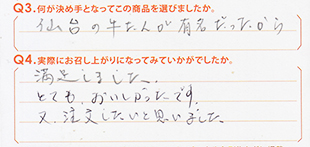 Q3.何が決め手となってこの商品を選びましたか。
仙台の牛たんが有名だったから
Q4.実際にお召し上がりになってみていかがでしたか。
満足しました。
とても、おいしかったです。
又、注文したいと思いました。